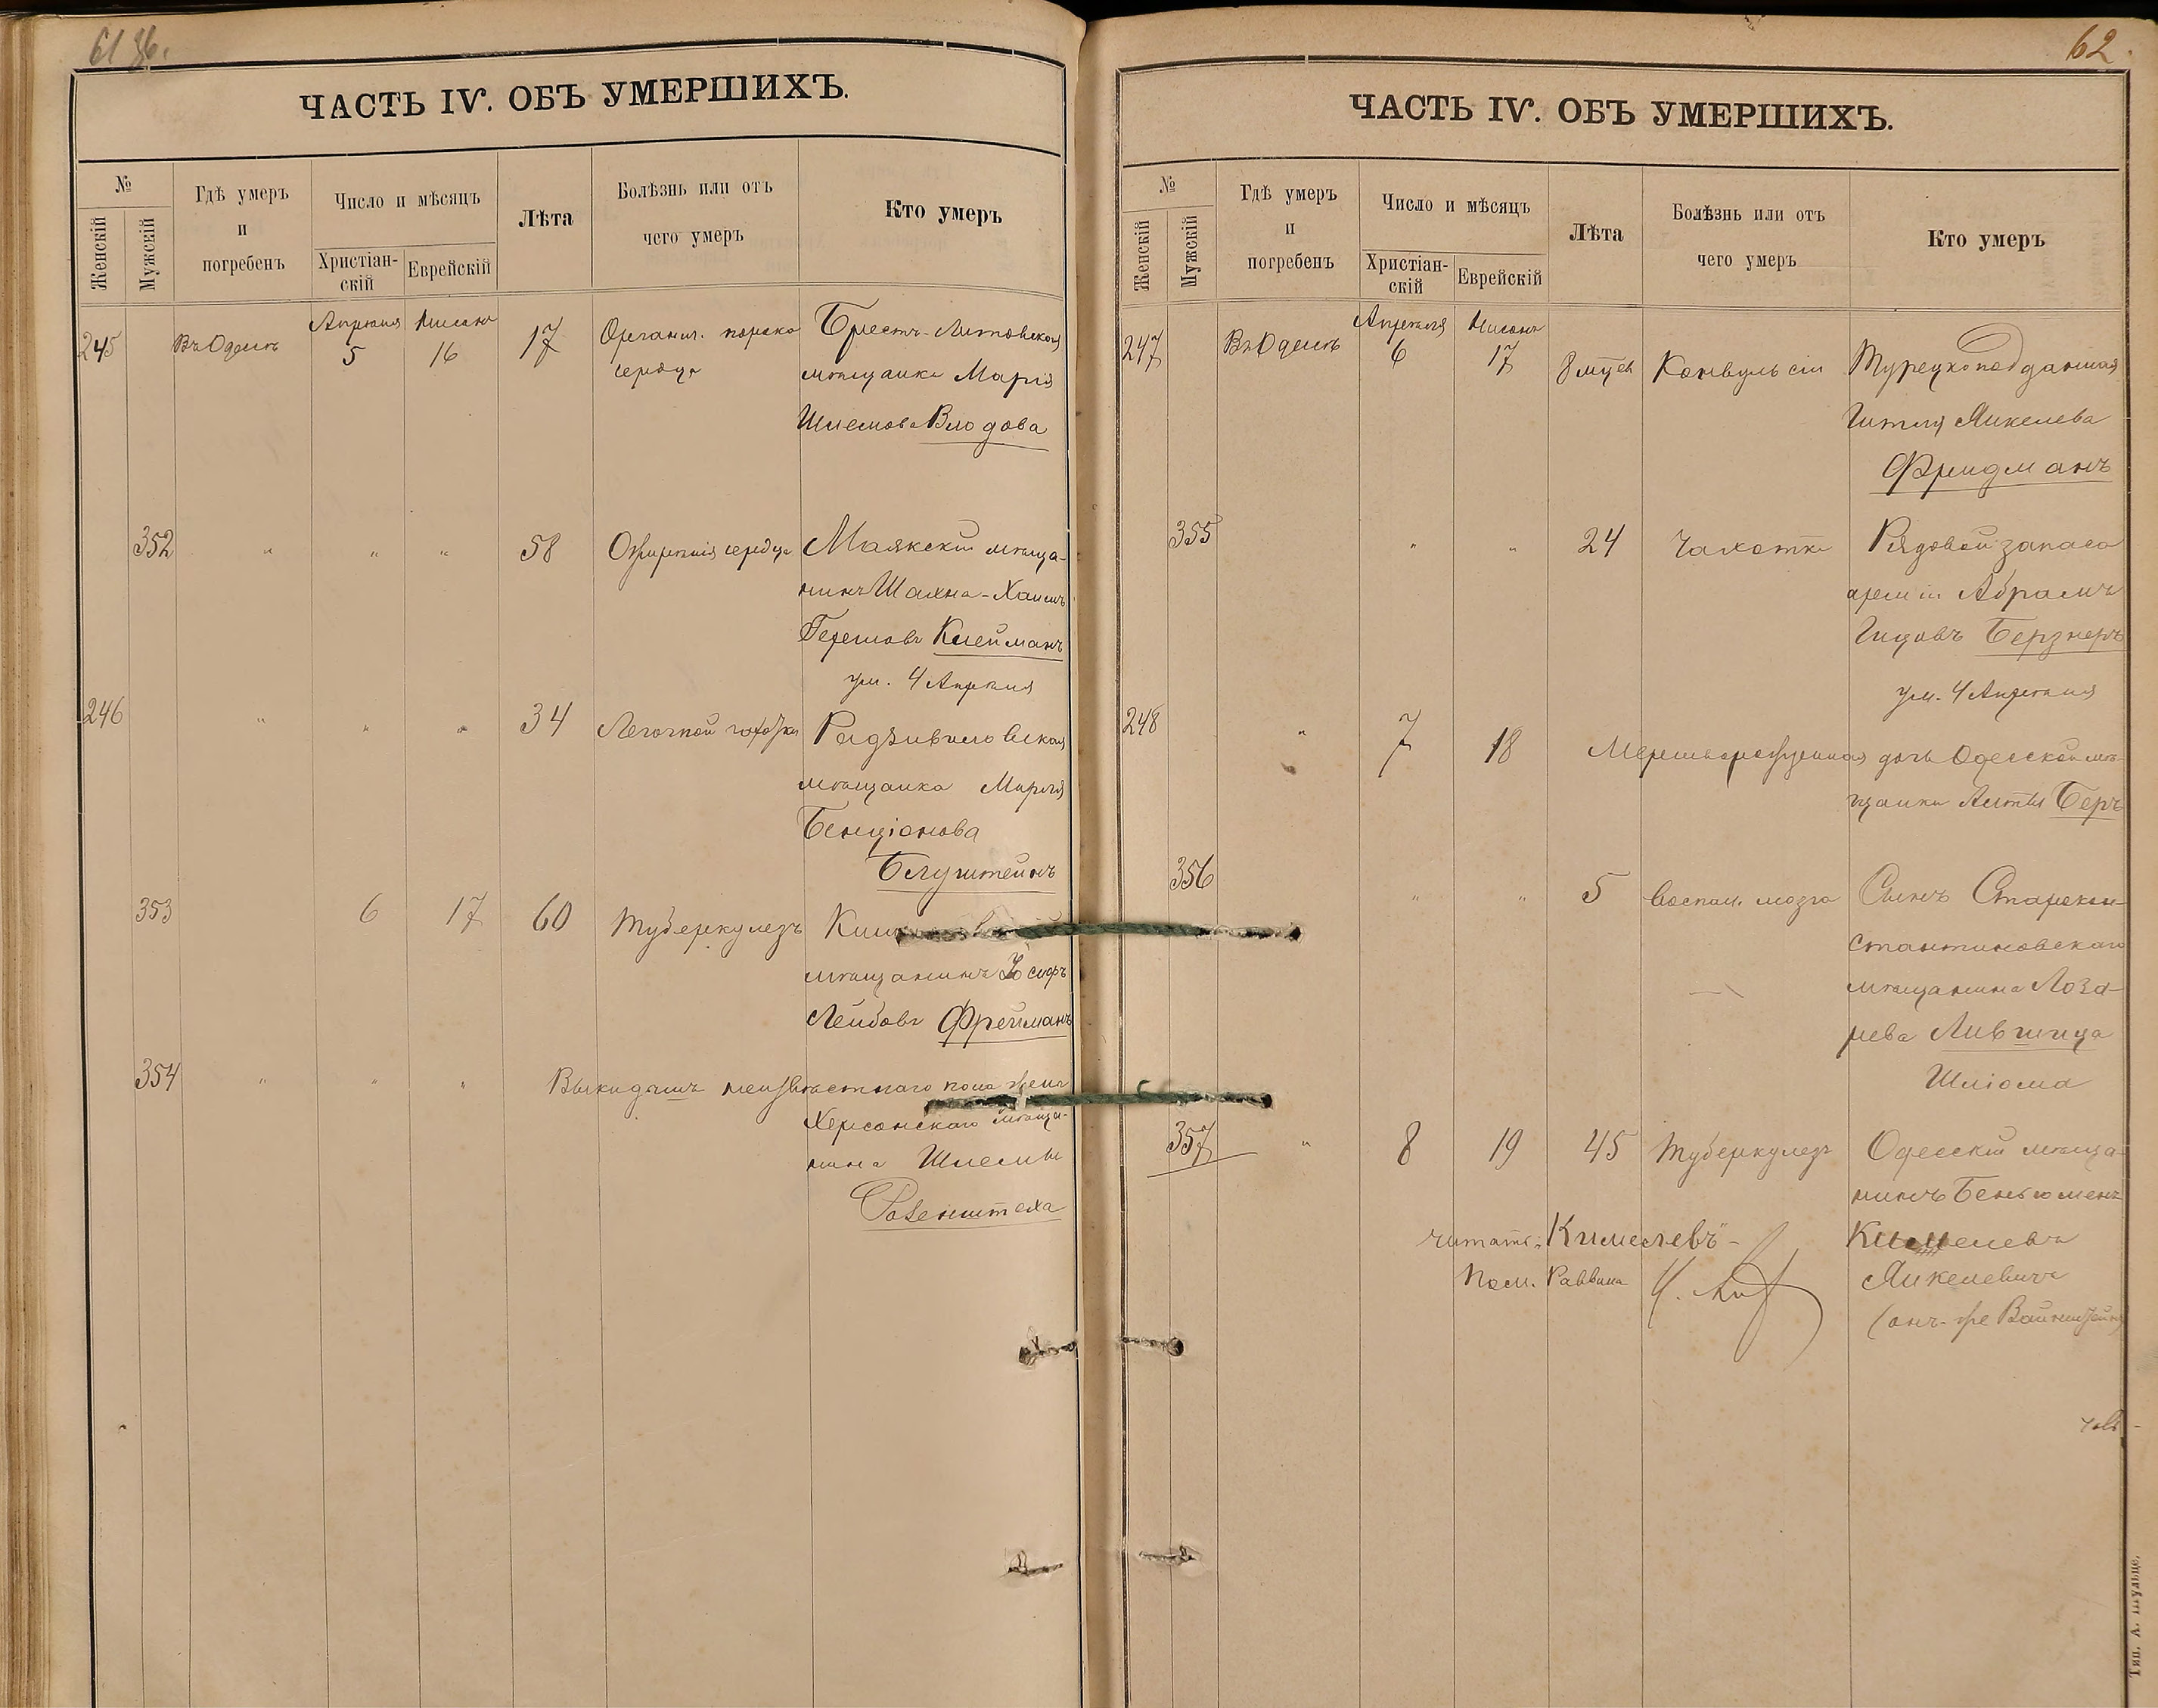 61 36.
ЧАСТЬ IV. ОБЪ УМЕРШИХЪ.
№
Женскій
Мужскій
Гдѣ умеръ
и
погребенъ
Число и мѣсяцъ
Христіан-
скій
Еврейскій
Лѣта
Болѣзнь или отъ
чего умеръ
Кто умеръ
245 Въ Одессѣ Апрѣля 5 Нисанъ 16 17 Органич. порока Брестъ-Литовская
сердца мѣщанка Марія
Шлемова Влодова
352 " " " 58 Ожиренія сердца Маякскій мѣща-
нинъ Шахна-Хаимъ
Гершовъ Клейманъ
ум. 4 Апрѣля
246 " " " 34 Легочной чахотки Радзивиловская
мѣщанка Мирля
Бенціонова
Блуштейнъ
353 6 17 60 Туберкулезъ
мѣщанинъ Іосифъ
Лейбовъ Фрейманъ
354 " " " Выкидышъ неизвѣстнаго пола жены
Херсонскаго мѣща-
нина Шлемы
Розенштеха
62.
ЧАСТЬ IV. ОБЪ УМЕРШИХЪ.
№
Женскій
Мужскій
Гдѣ умеръ
и
погребенъ
Число и мѣсяцъ
Христіан-
скій
Еврейскій
Лѣта
Болѣзнь или отъ
чего умеръ
Кто умеръ
247 Въ Одессѣ Апрѣля 6 Нисанъ 17 8 мцев Конвульсіи Турецкоподданная
Гитля Янкелева
Фридманъ
355 " " 24 Чахотки Рядовой запаса
арміи Абрамъ
Гицовъ Берзнеръ
ум. 4 Апрѣля
248 " 7 18 Мертворожденная дочь Одесской мѣ-
щанки Беръ
356 " " 5 Воспал. мозга Сынъ Старокон-
стантиновскаго
мѣщанина Лоза-
рева Лившица
Шліома
357 " 8 19 45 Туберкулезъ Одесскій мѣща-
нинъ Беньюменъ
читать: "Кимелевъ" - Кимелевъ
Пом. Раввина Янкелевичъ
(онъ-же Вайнштейнъ)
Тип. А. Шульце.